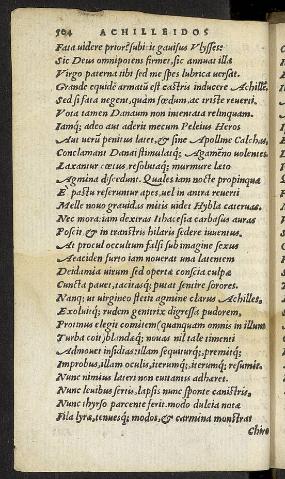 504 ACHILLEIDOS
Fata uidere priorē: subit & gauisus Vlysses:
Sic Deus omnipotens firmet, sic annuat illa
Virgo paterna tibi sed me spes lubrica uersat.
Grande equidē armatū est castris inducere Achillē,
Sed si fata negent, quàm fœdum, ac triste reuerti.
Vota tamen Danaum non intentata relinquam.
Iamq; adeo aut aderit mecum Peleius Heros
Aut uerū penitus latet, & sine Apolline Calchas.
Conclamant Danai stimulatq; Agamēno uolentes.
Laxantur cœtus, resolutaq; murmure læto
Agmina discedunt. Quales iam nocte propinqua
E pastu referuntur apes, uel in antra reuerti
Melle nouo grauidas mitis uidet Hybla cateruas.
Nec mora: iam dextras Ithacesia carbasus auras
Poscit, & in transtris hilaris sedere iuuentus.
At procul occultum falsi sub imagine sexus
Aeaciden furto iam nouerat una latentem
Deidamia uirum sed opertæ conscia culpæ
Cuncta pauet, tacitasq; putat sentire sorores.
Nanq; ut uirgineo stetit agmine clarus Achilles,
Exoluitq; rudem genitrix digressa pudorem,
Protinus elegit comitem (quanquam omnis in illum
Turba coit) blandæq; nouas nil tale timenti
Admouet insidias: illam sequiturq;, premitq;
Improbus, illam oculis, iterumq;, iterumq; resumit.
Nunc nimius lateri non euitantis adhæret.
Nunc leuibus sertis, lapsis nunc sponte canistris,
Nunc thyrso parcente ferit. modo dulcia notæ
Fila lyræ, tenuesq; modos, & carmina monstrat
Chiro